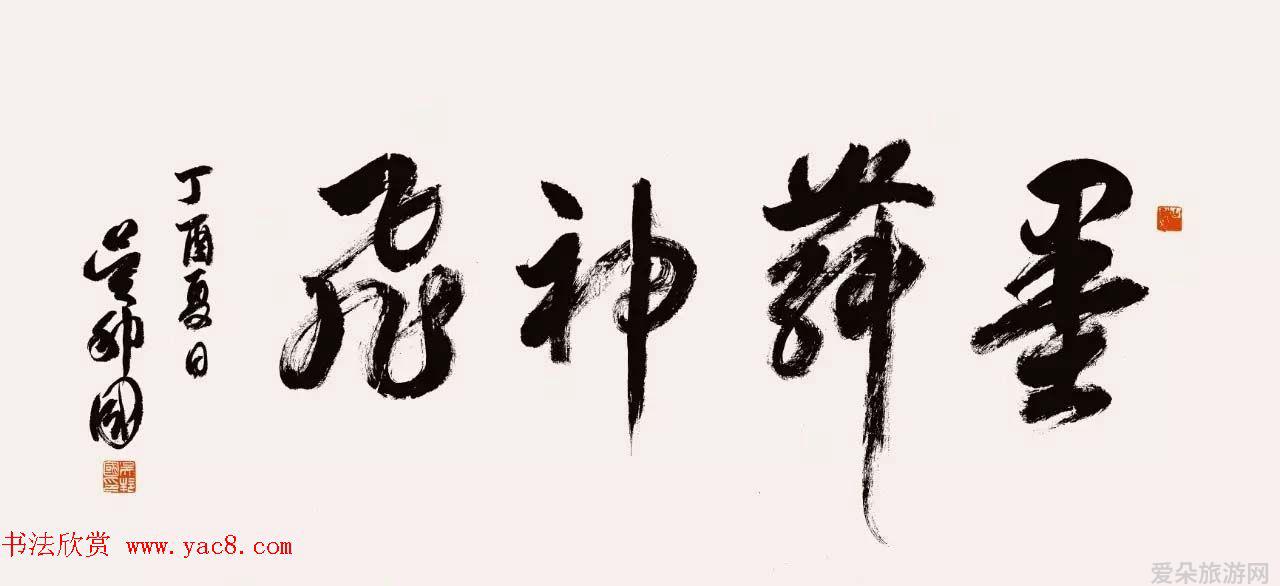 墨舞神飛
丁酉夏日
吴邦国
书法欣赏 www.yac8.com
爱朵旅游网